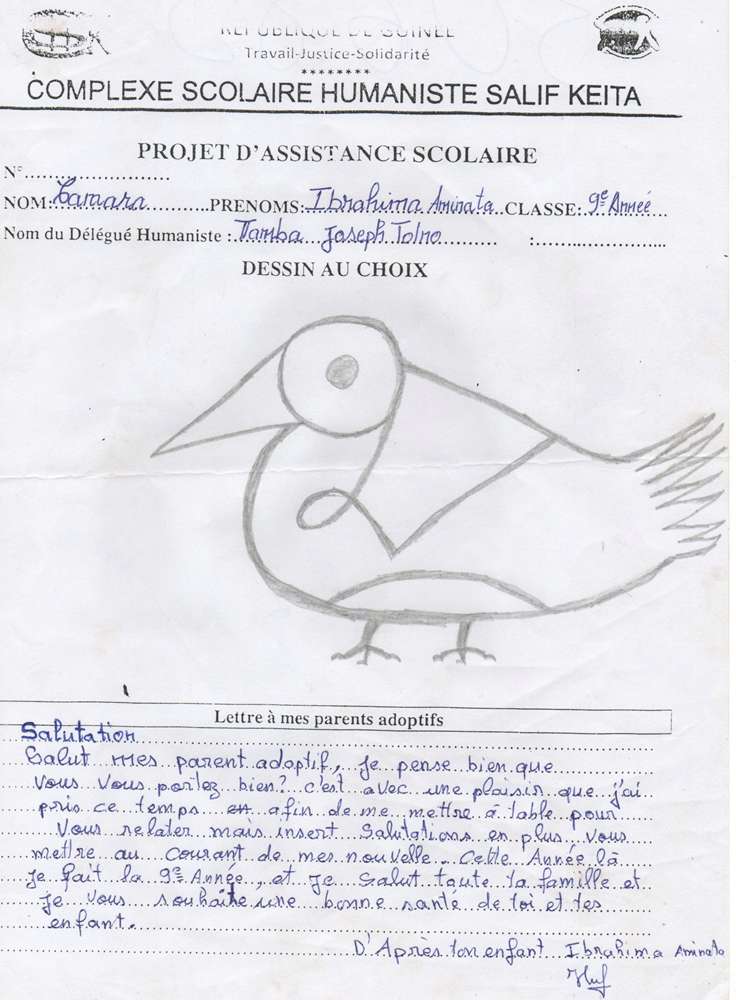 REPUBLIQUE DE GUINEE
Travail-Justice-Solidarité
********
COMPLEXE SCOLAIRE HUMANISTE SALIF KEITA
PROJET D'ASSISTANCE SCOLAIRE
N°........................
NOM: Camara PRENOMS: Ibrahima Aminata CLASSE: 9e Année
Nom du Délégué Humaniste : Tamba Joseph Tolno :........................
DESSIN AU CHOIX
Lettre à mes parents adoptifs
Salutation
Salut mes parent adoptif, je pense bien que
vous vous portez bien? c'est avec une plaisir que j'ai
pris ce temps en afin de me mettre à table pour
Vous relater mais insert Salutations en plus vous
mettre au courant de mes nouvelle. Cette Année là
je fait la 9e Année, et je salut toute ta famille et
je vous souhaite une bonne santé de toi et tes
enfant.
D'Après ton enfant Ibrahima Aminata